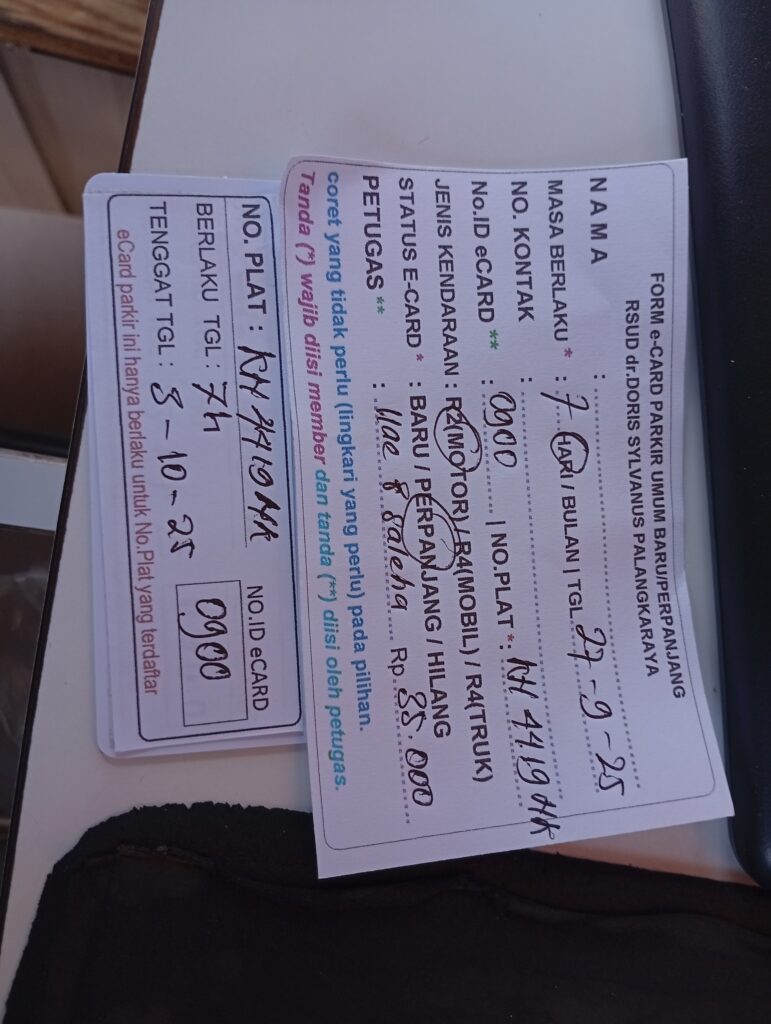 FORM e-CARD PARKIR UMUM BARU/PERPANJANG
RSUD dr.DORIS SYLVANUS PALANGKARAYA
NAMA :
MASA BERLAKU * : 7 HARI / BULAN | TGL 27-9-25
NO. KONTAK :
No.ID eCARD ** : 0900 | NO.PLAT * : KH 4419 HR
JENIS KENDARAAN : R2(MOTOR) / R4(MOBIL) / R4(TRUK)
STATUS E-CARD * : BARU / PERPANJANG / HILANG
PETUGAS ** : saleha Rp. 35.000
coret yang tidak perlu (lingkari yang perlu) pada pilihan.
Tanda (*) wajib diisi member dan tanda (**) diisi oleh petugas.
NO. PLAT : KH 4419 HR NO.ID eCARD
BERLAKU TGL : 7h 0900
TENGGAT TGL : 5-10-25
eCard parkir ini hanya berlaku untuk No.Plat yang terdaftar